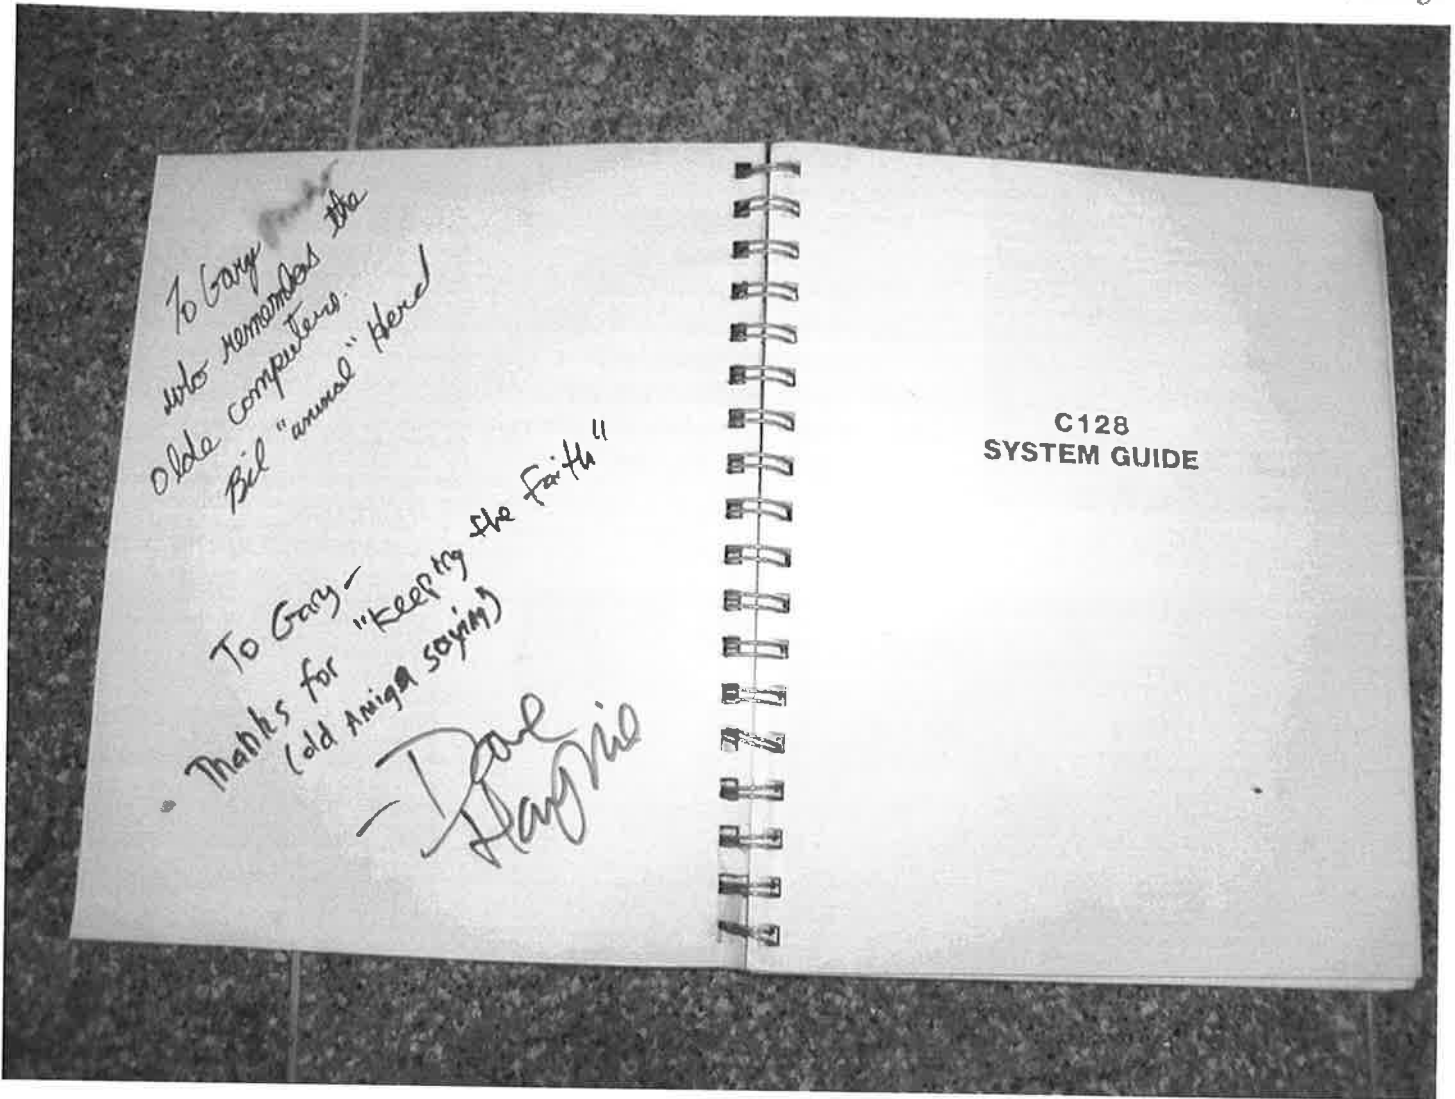 To Gary
who remembers the
olde computers.
Bil "animal" Herd
To Gary -
Thanks for "keeping the Faith"
(old Amiga saying)
- Dave
Haynie
C128
SYSTEM GUIDE